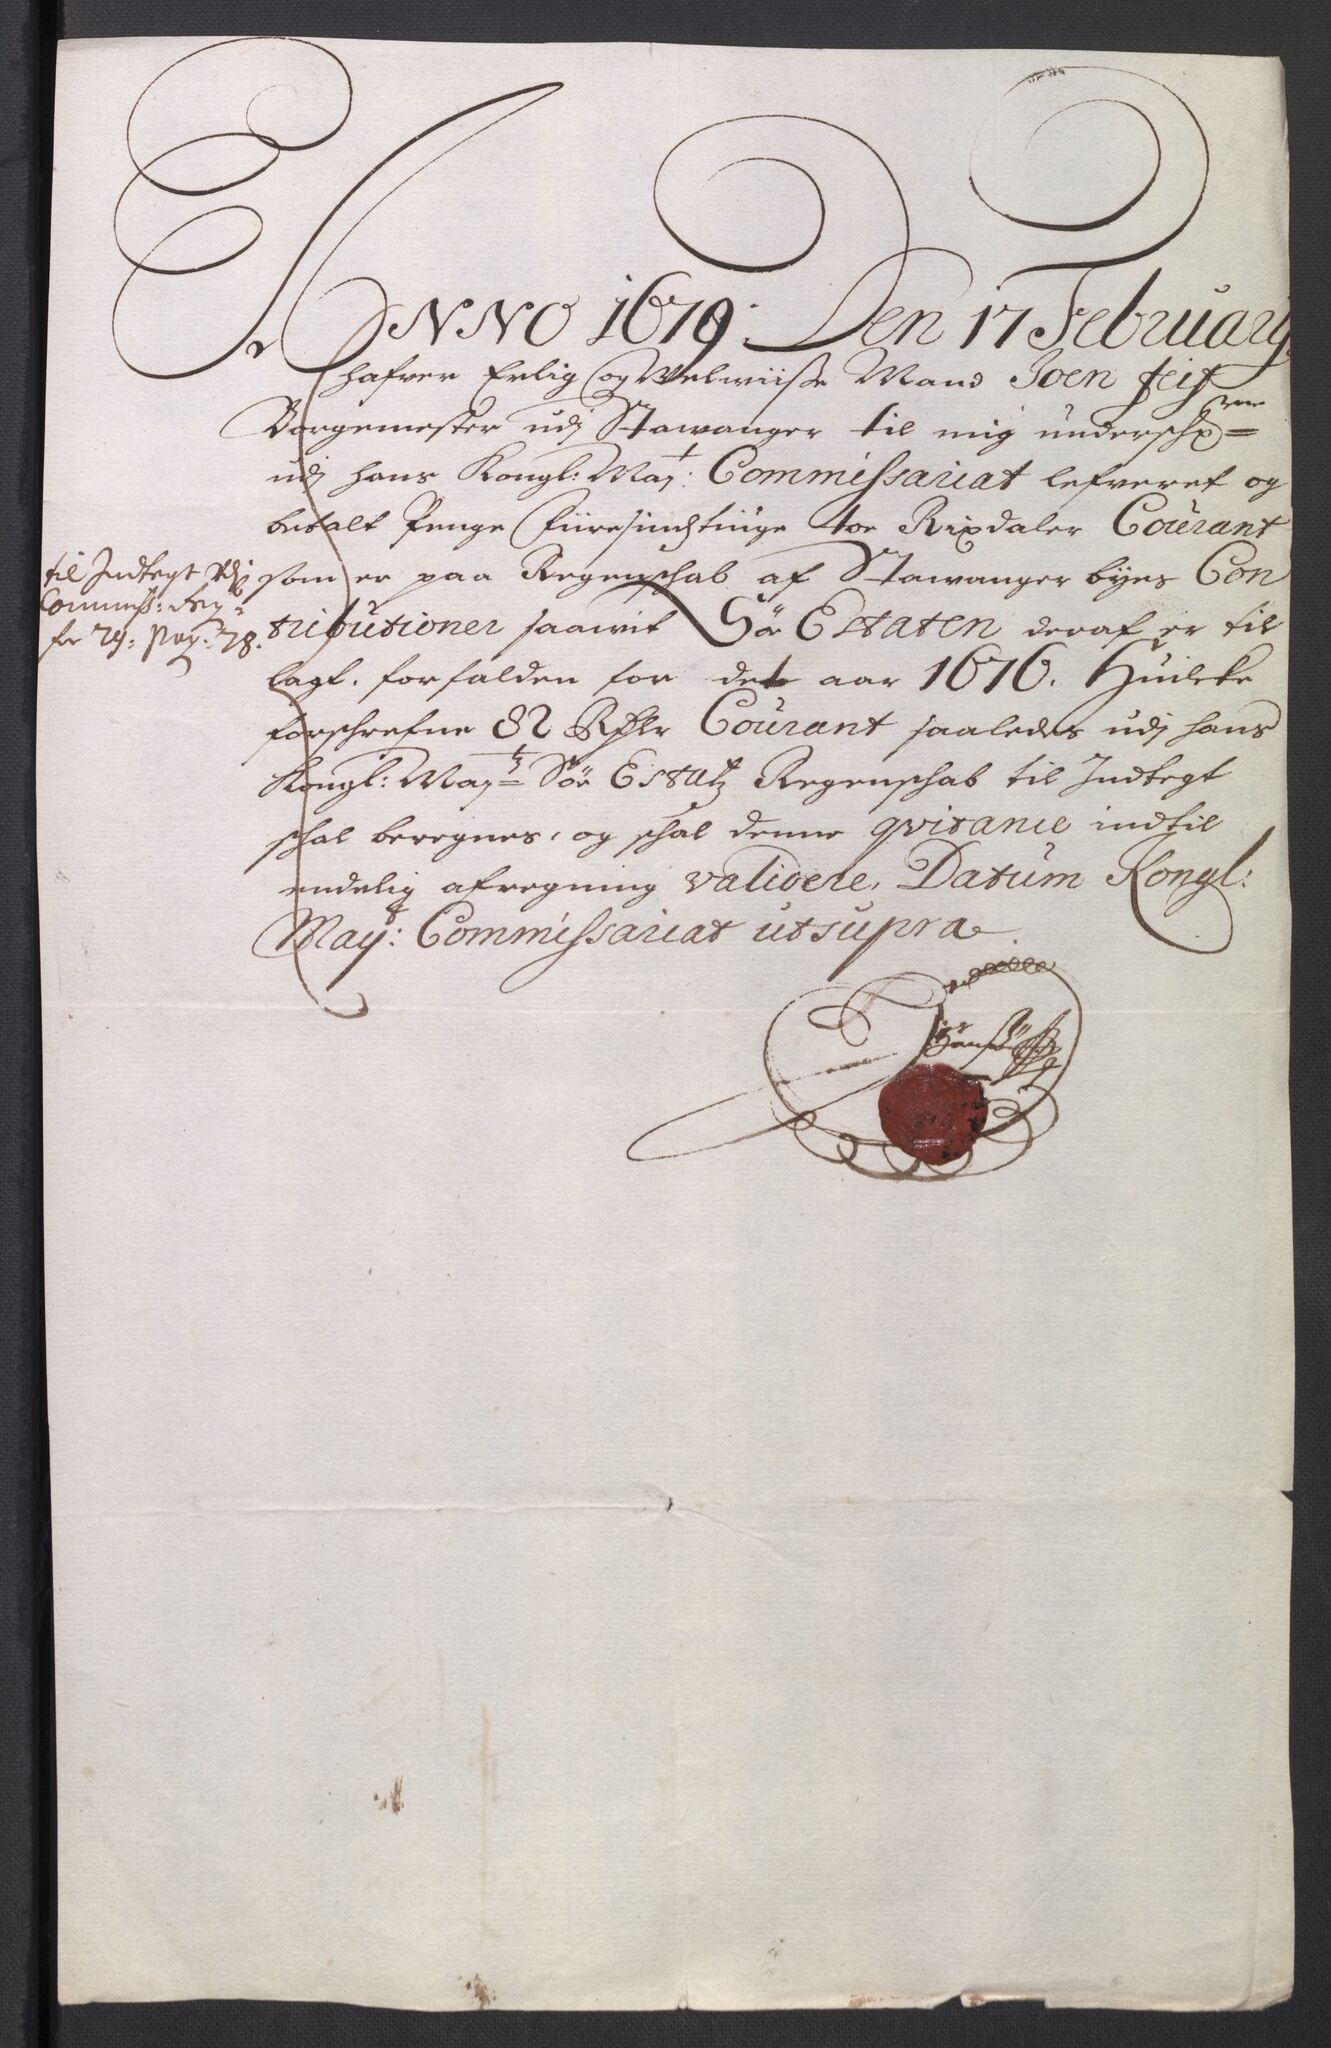 ANNO 1679. Den 17 February
hafver Erlig og Welwiise Mand Joen Feif
Borgemester udj Stawanger til mig underschr=ne
udj hans Kongl: May:t Commissariat lefveret og
betalt Penge Fiiresindstiuge toe Rixdaler Courant
som er paa Regenschab af Stawanger byes Con
tributioner saawit Söe Estaten deraf er til
lagt, forfalden for det aar 1676. Huilcke
forschrefne 82 Rdlr Courant saaledes udj hans
Kongl: May:tz Söe Estatz Regenschab til Indtegt
schal beregnes, og schal denne qvitanie indtil
endelig afregning validere, Datum Kongl:
May:t Commissariat ut supra.
til Indtegt udj
Commiss: Reg:
for
78.